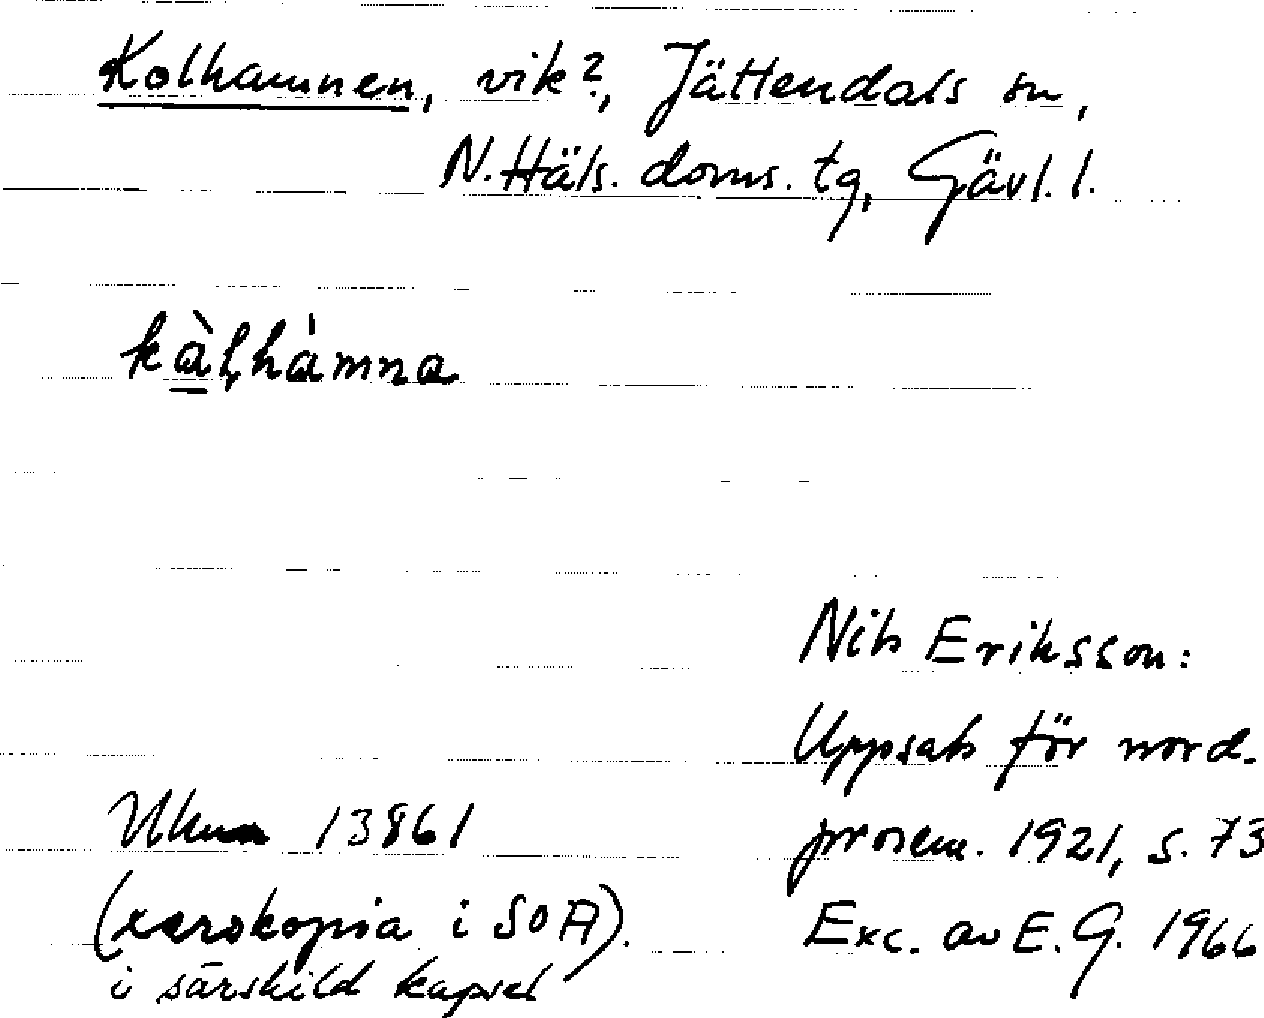 Kolhamnen, vik?, Jättendals sn,
N. Häls. doms. tg, Gävl. l.
kàl̥hàmna
Nils Eriksson:
Uppsats för nord.
prosem. 1921, s. 73
Exc. av E. G. 1966
13861
(xerokopia i SOA).
i särskild kapsel